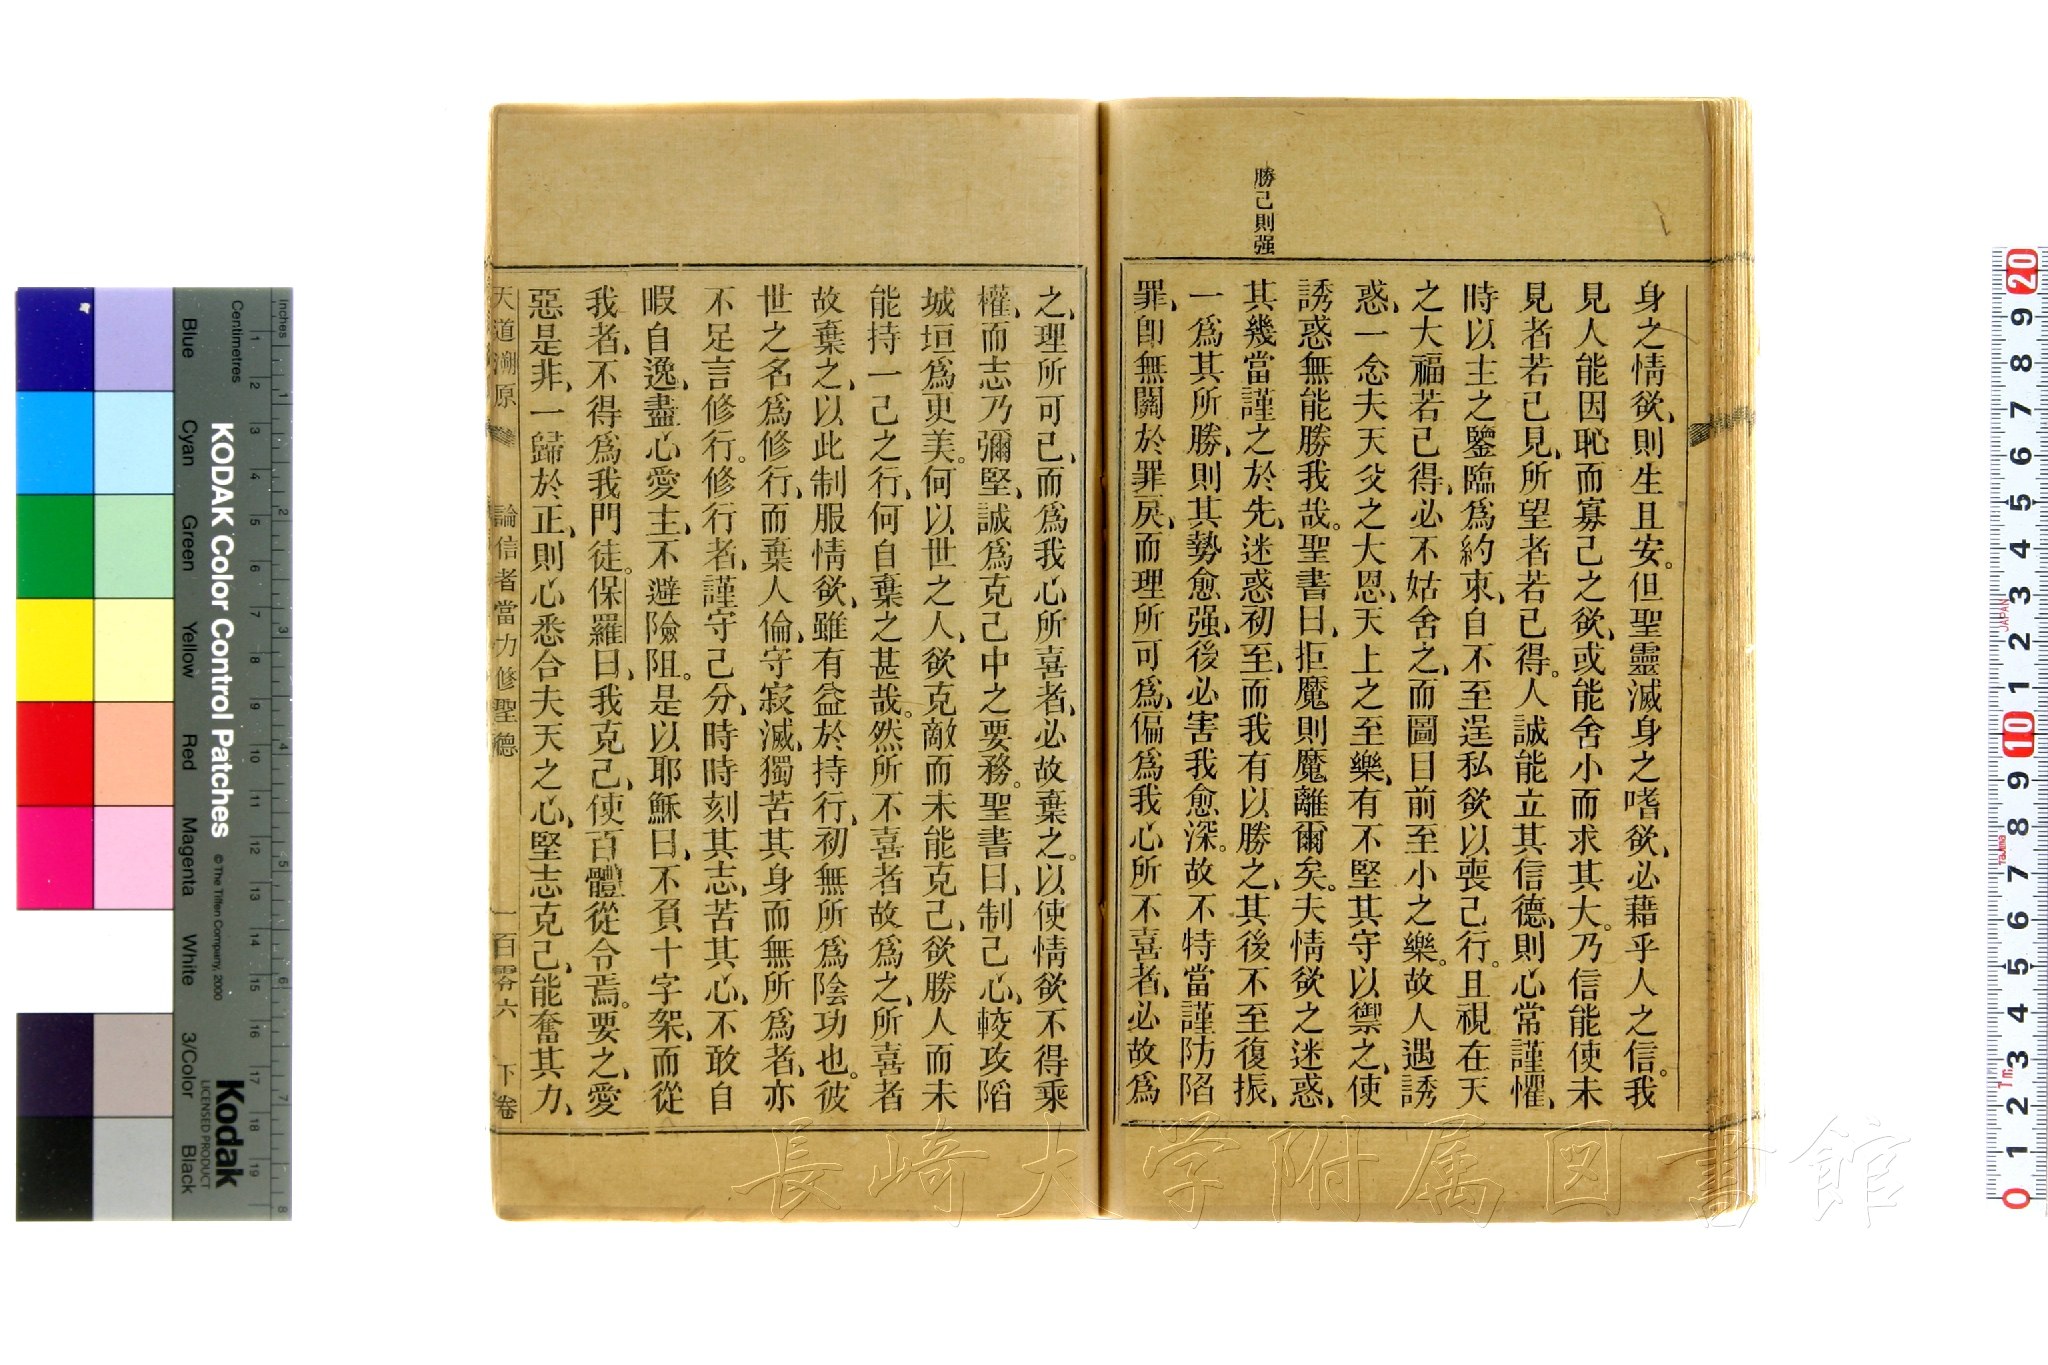 勝己則强
身之情欲、則生且安。但聖靈滅身之嗜欲、必藉乎人之信。我
見人能因恥而寡己之欲、或能舍小而求其大。乃信能使未
見者若己見、所望者若己得。人誠能立其信德、則心常謹懼、
時以主之鑒臨爲約束、自不至逞私欲以喪己行。且視在天
之大福若己得、必不姑舍之、而圖目前至小之樂。故人遇誘
惑、一念夫天父之大恩、天上之至樂、有不堅其守以禦之、使
誘惑無能勝我哉。聖書曰、拒魔則魔離爾矣。夫情欲之迷惑、
其幾當謹之於先、迷惑初至、而我有以勝之、其後不至復振、
一爲其所勝、則其勢愈强、後必害我愈深。故不特當謹防陷
罪、卽無關於罪戾、而理所可爲、偏爲我心所不喜者、必故爲
之、理所可已、而爲我心所喜者、必故棄之。以使情欲不得乘
權、而志乃彌堅、誠爲克己中之要務。聖書曰、制己心、較攻陷
城垣爲更美。何以世之人、欲克敵而未能克己、欲勝人而未
能持一己之行、何自棄之甚哉。然所不喜者故爲之、所喜者
故棄之、以此制服情欲、雖有益於持行、初無所爲陰功也。彼
世之名爲修行、而棄人倫、守寂滅、獨苦其身而無所爲者、亦
不足言修行。修行者、謹守己分、時時刻其志、苦其心、不敢自
暇自逸、盡心愛主、不避險阻。是以耶穌曰、不負十字架、而從
我者、不得爲我門徒。保羅曰、我克己、使百體從令焉。要之、愛
惡是非、一歸於正、則心悉合夫天之心、堅志克己、能奮其力、
天道溯原 論信者當力修聖德 一百零六 下卷
長崎大学附属図書館
KODAK Color Control Patches
© The Tiffen Company, 2000
Kodak
LICENSED PRODUCT
Inches
Centimetres
Blue Cyan Green Yellow Red Magenta White 3/Color Black
1 2 3 4 5 6 7 8
1 2 3 4 5 6 7 8 9 10 11 12 13 14 15 16 17 18 19
20 9 8 7 6 5 4 3 2 1 10 9 8 7 6 5 4 3 2 1 0
JAPAN
Tajima